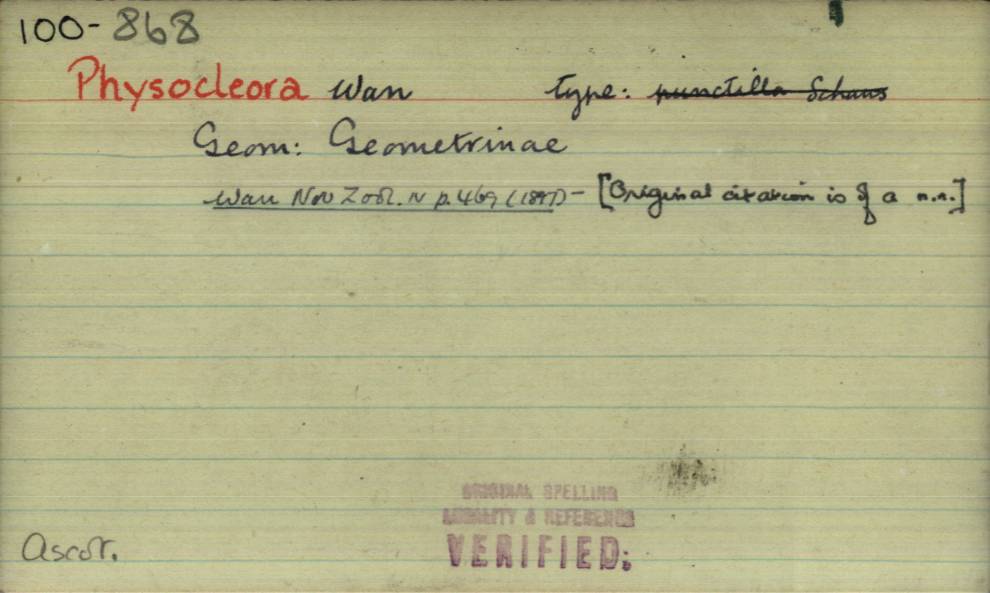 100-868
Physocleora Warr type: punctilla Schaus
Geom: Geometrinae
Warr Nov Zool. IV p.469 (1897) - [Original citation is of a n.n.]
ORIGINAL SPELLING
LOCALITY & REFERENCE
VERIFIED:
Ascot.